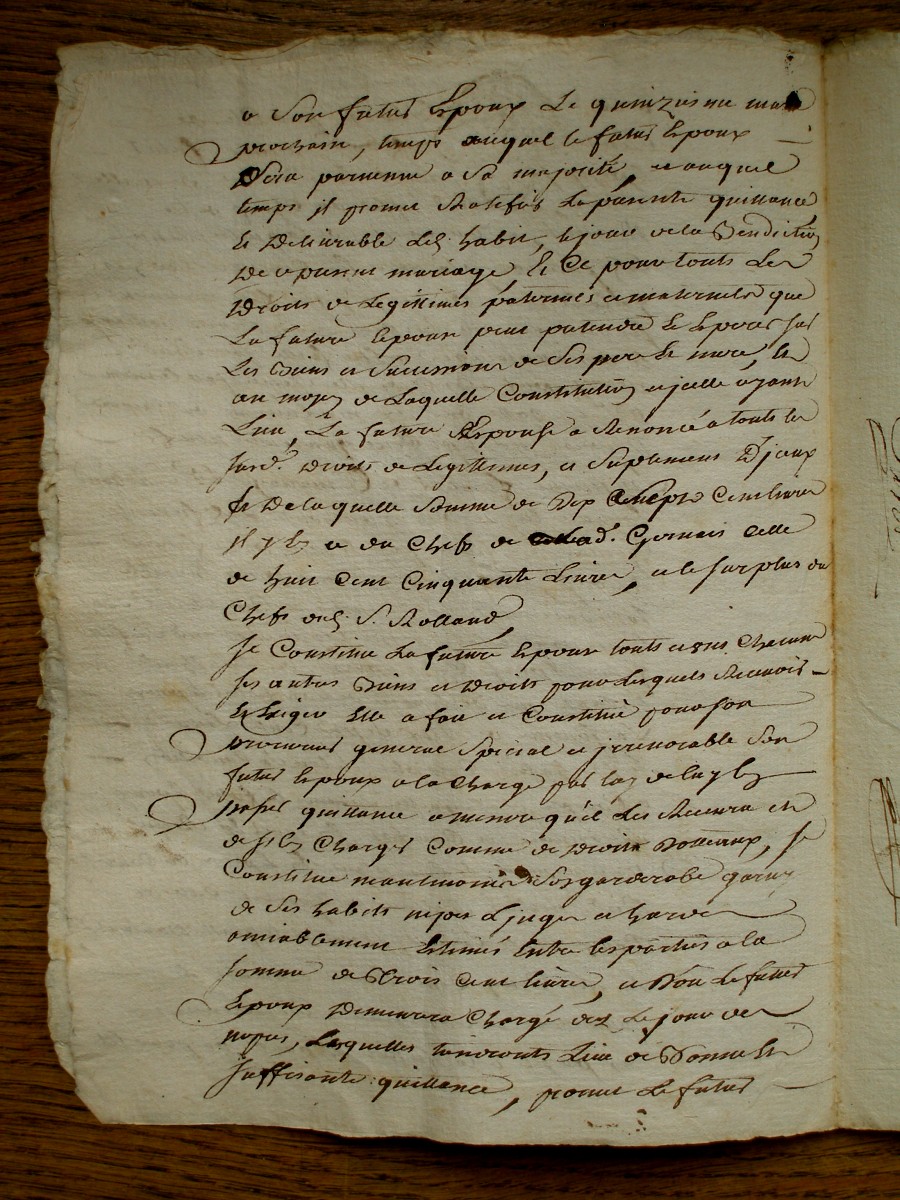 a son futur Epoux Le quinzieme mars
prochain, temps auquel le futur Epoux
sera parvenu a sa majorité, et auquel
temps il promet Ratefier La présente quittance
Et Delivrable Les habit, le jour de la Bendiction
De ce présent mariage Et Ce pour touts Les
Droits de Legittimes paternels et maternels que
La future Epouse peut prétendre Et Esperer sur
Les Biens et Successions de Ses pere Et mere, Et
au moyen de Laquelle Constitution et jcelle ayant
Lieu, La future Espouse a Renoncé a touts les
susd. Droits de Legittimes, et Suplement D'jceux
Et De laquelle Somme de Dix Cent livres
il y En a du Chefs de lad. Gervais Celle
de huit Cent Cinquante Livres, et le surplus du
Chefs dud. S. Rolland
Se Constitue La future Epouse touts et uns Chacuns
ses autres Biens et Droits pour Lesquels Recevoir
Et Exiger Elle a fait et Constitué pour son
procureur general Special et jrrevocable Son
futur Epoux a la Charge par luy de luy En
passer quittance a mesure qu'il Les Recevra et
de s'En Charger Comme de Droits Dotteaux, Se
Constitue mantmoins Son garderobe garny
de Ses habits nipes Linges et hardes
amiablement Estimés Entre les parties a la
somme de Trois Cent livres, et Dont Le futur
Epoux Demeurera Chargé dez Le jour des
nopces, Lesquelles tiendronts Lieu de Bonne Et
suffisante quittance, promet Le futur